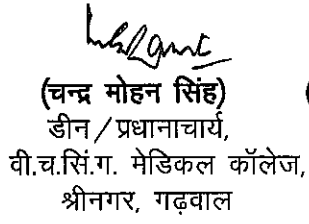 (चन्द्र मोहन सिंह)
डीन/प्रधानाचार्य,
वी.च.सिं.ग. मेडिकल कॉलेज,
श्रीनगर, गढ़वाल